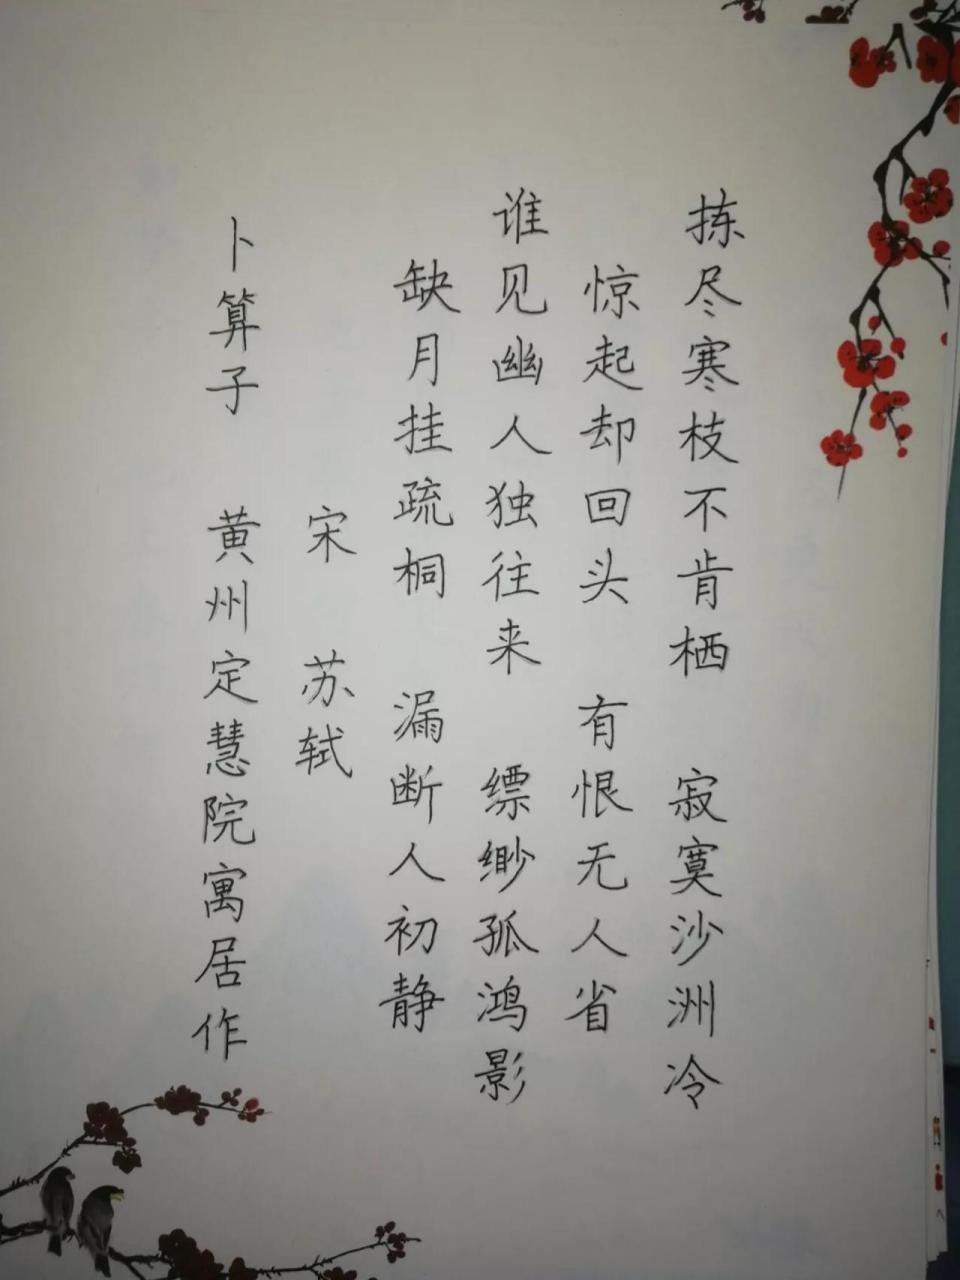 卜算子 黄州定慧院寓居作
宋 苏轼
缺月挂疏桐 漏断人初静
谁见幽人独往来 缥缈孤鸿影
惊起却回头 有恨无人省
拣尽寒枝不肯栖 寂寞沙洲冷